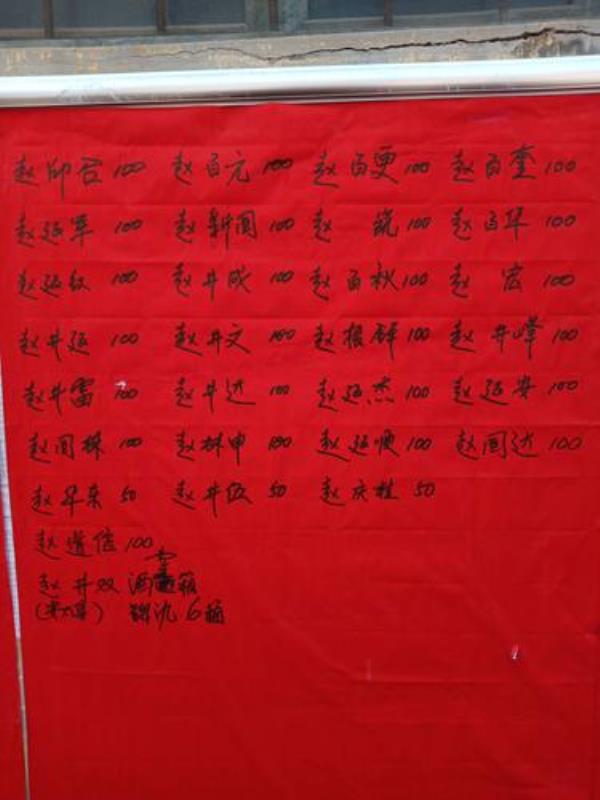 赵帅召 100 赵百元 100 赵百更 100 赵百奎 100
赵延军 100 赵新闻 100 赵 筑 100 赵百华 100
赵延红 100 赵井成 100 赵百秋 100 赵 宏 100
赵井延 100 赵井文 100 赵振铎 100 赵井峰 100
赵井雷 100 赵井达 100 赵延杰 100 赵延安 100
赵闻栋 100 赵林申 100 赵延顺 100 赵闻达 100
赵早来 50 赵井伍 50 赵庆柱 50
赵道信 100
赵井双 酒 箱
6桶